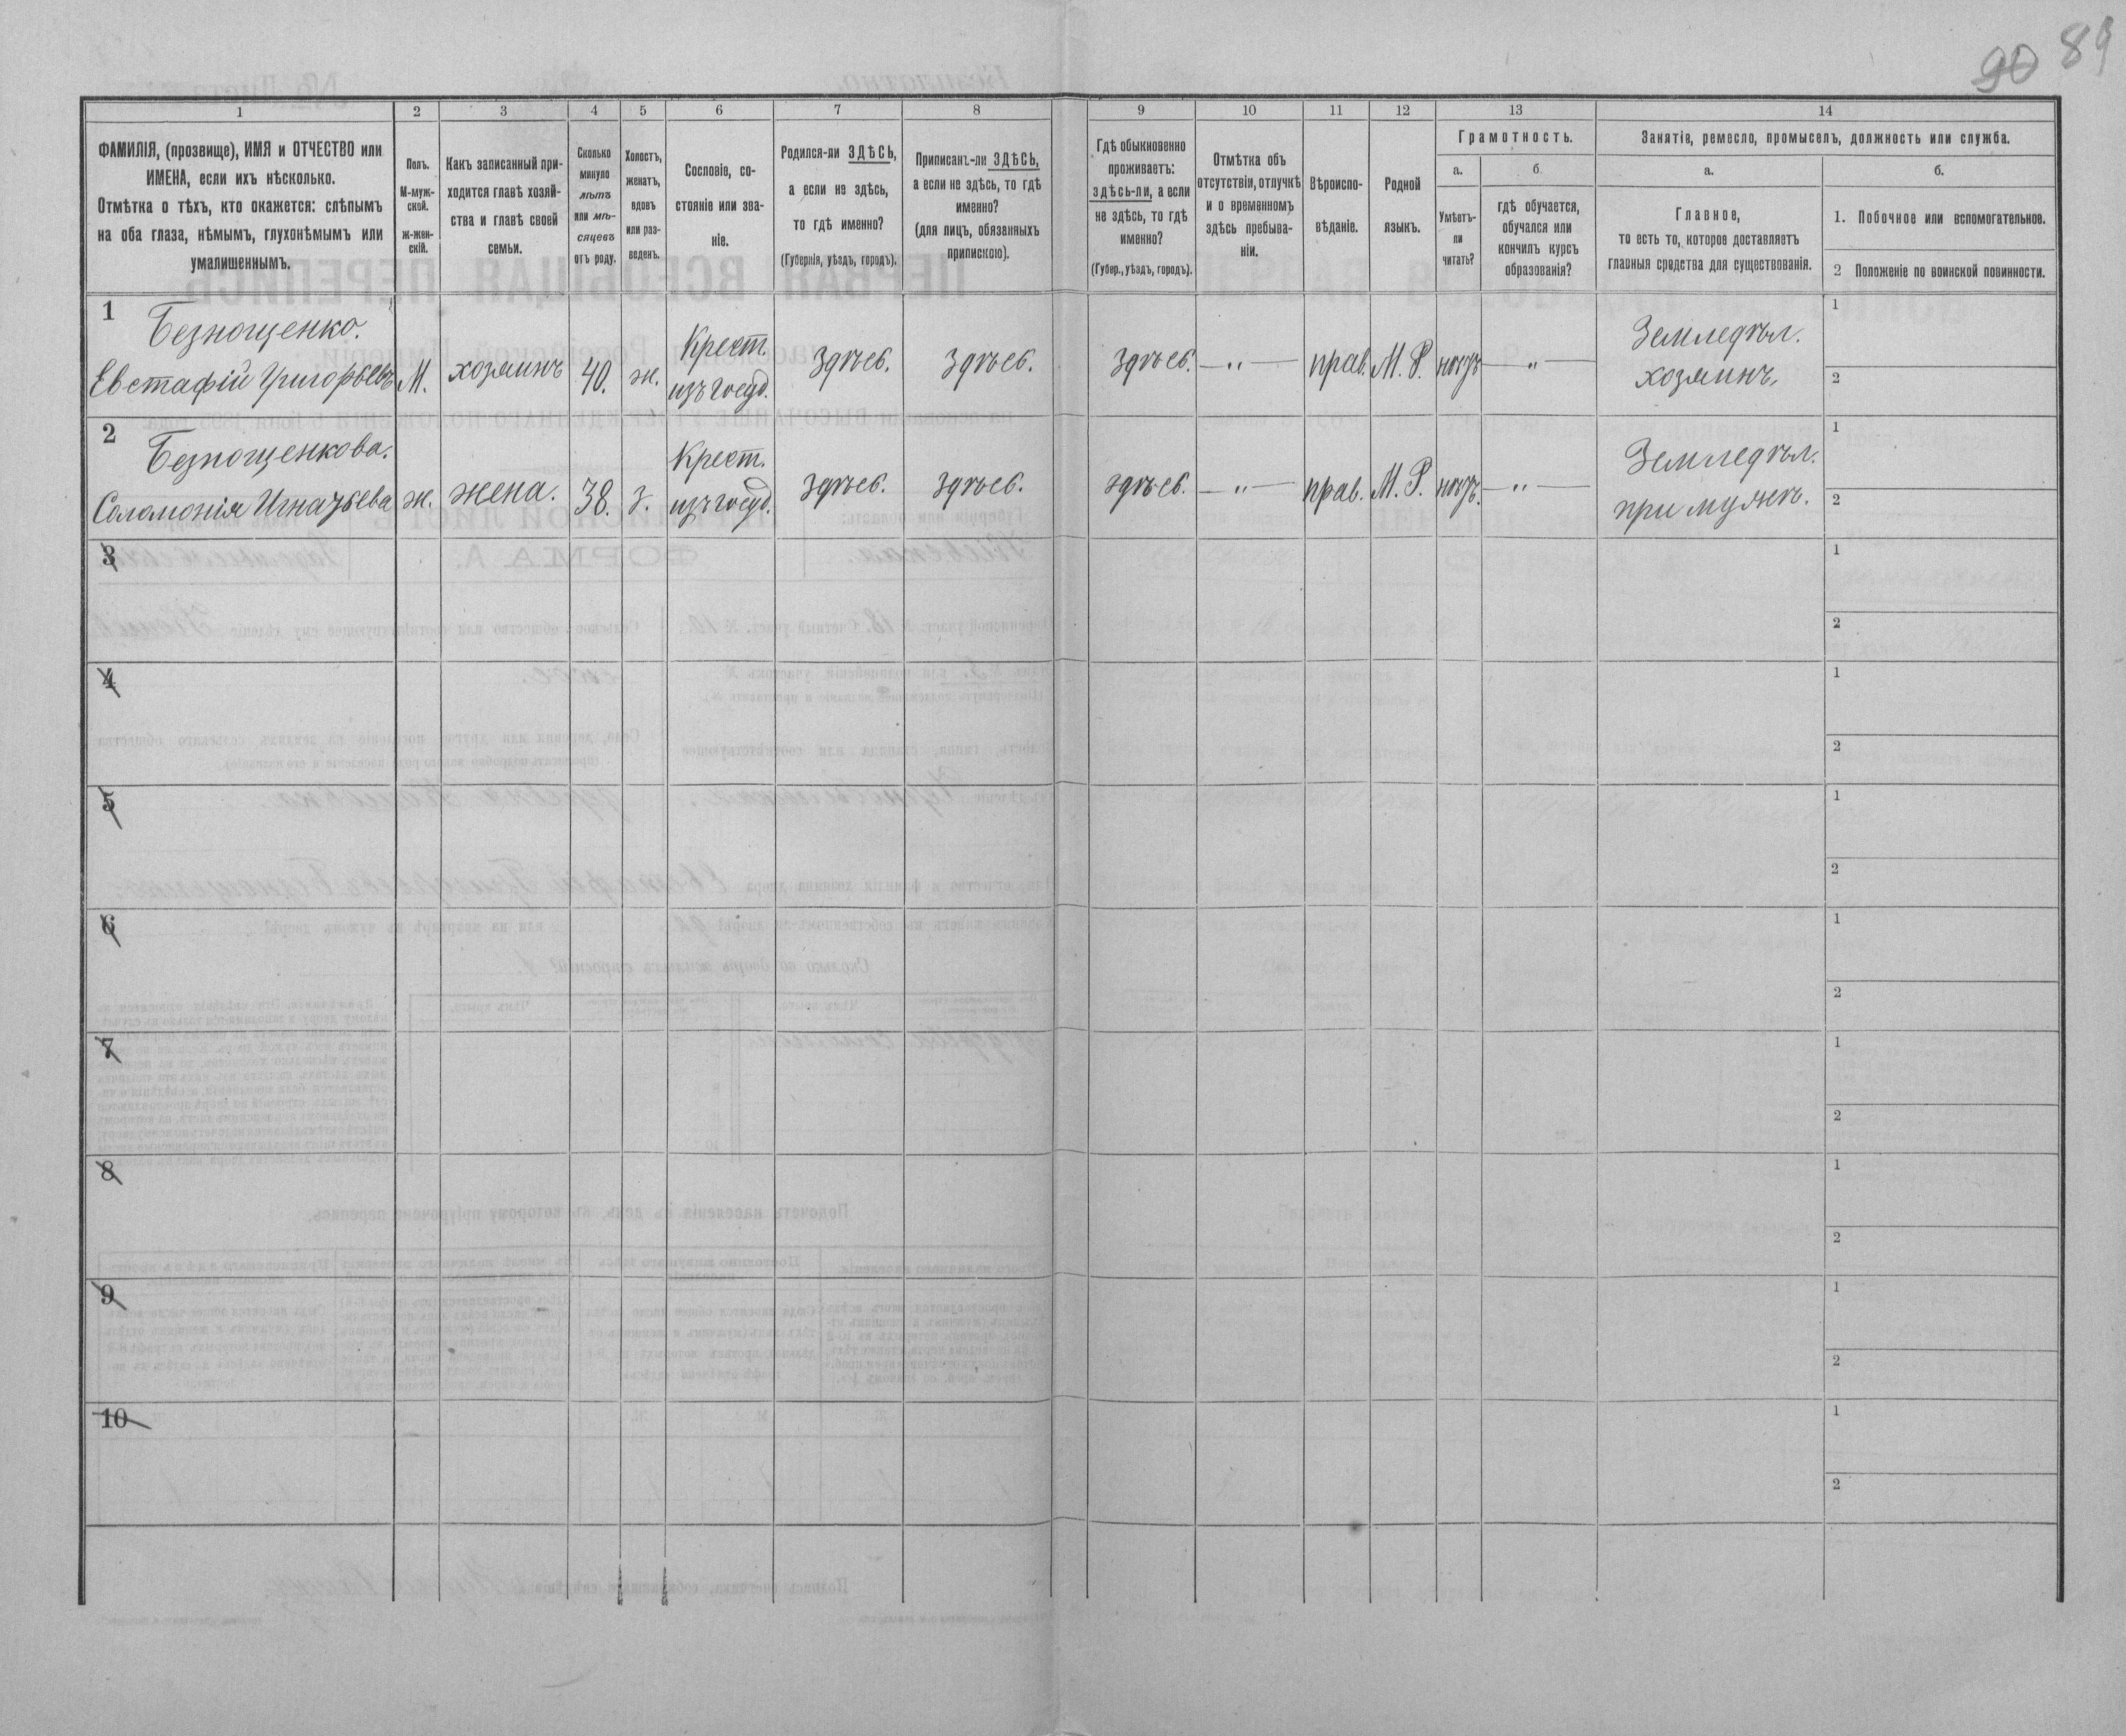 90 89
1 2 3 4 5 6 7 8 9 10 11 12 13 14
ФАМИЛІЯ, (прозвище), ИМЯ и ОТЧЕСТВО или
ИМЕНА, если ихъ нѣсколько.
Отмѣтка о тѣхъ, кто окажется: слѣпымъ
на оба глаза, нѣмымъ, глухонѣмымъ или
умалишеннымъ.
Полъ.
М-муж-
ской.
Ж-жен-
скій.
Какъ записанный при-
ходится главѣ хозяй-
ства и главѣ своей
семьи.
Сколько
минуло
лѣтъ
или мѣ-
сяцевъ
отъ роду.
Холостъ,
женатъ,
вдовъ
или раз-
веденъ.
Сословіе, со-
стояніе или зва-
ніе.
Родился-ли ЗДѢСЬ,
а если не здѣсь,
то гдѣ именно?
(Губернія, уѣздъ, городъ).
Приписанъ-ли ЗДѢСЬ,
а если не здѣсь, то гдѣ
именно?
(для лицъ, обязанныхъ
припискою).
Гдѣ обыкновенно
проживаетъ:
здѣсь-ли, а если
не здѣсь, то гдѣ
именно?
(Губер., уѣздъ, городъ).
Отмѣтка объ
отсутствіи, отлучкѣ
и о временномъ
здѣсь пребыва-
ніи.
Вѣроиспо-
вѣданіе.
Родной
языкъ.
Грамотность.
а.
Умѣетъ-
ли
читать?
б.
гдѣ обучается,
обучался или
кончилъ курсъ
образованія?
Занятія, ремесло, промыселъ, должность или служба.
а.
Главное,
то есть то, которое доставляетъ
главныя средства для существованія.
б.
1. Побочное или вспомогательное.
2 Положеніе по воинской повинности.
1 Безнощенко.
Евстафій Григорьевъ М. хозяинъ 40. ж. Крест. изъ госуд. здѣсь. здѣсь. здѣсь. — „ — прав. М. Р. — „ — Земледѣл. хозяинъ,
1
2
2 Безнощенкова.
Соломонія Игнатьева ж. жена. 38. з. Крест. изъ госуд. здѣсь. здѣсь. здѣсь. — „ — прав. М. Р. — „ — Земледѣл. при мужѣ.
1
2
3
1
2
4
1
2
5
1
2
6
1
2
7
1
2
8
1
2
9
1
2
10
1
2